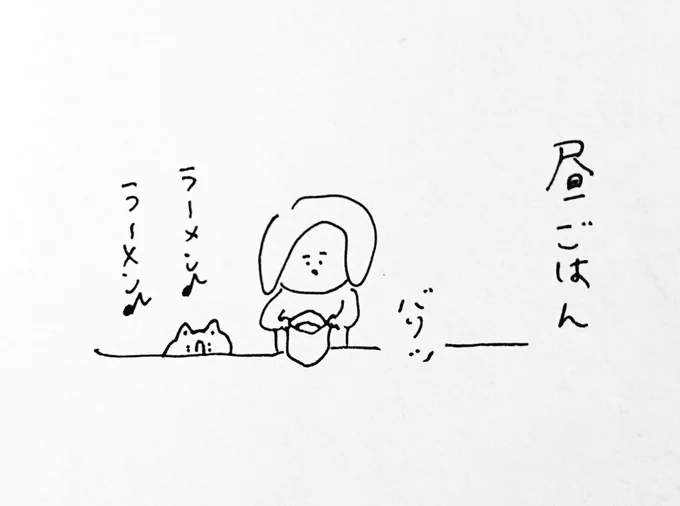 昼ごはん
バリッ
ラーメン♪
ラーメン♪